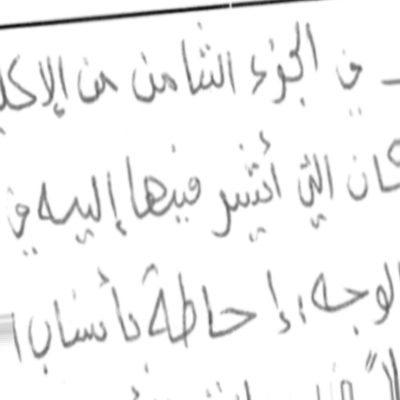 في الجزء الثامن من الإكل
كان التي أشير فيها إليه في
الوجه؛ إحاطة بأنساب ا